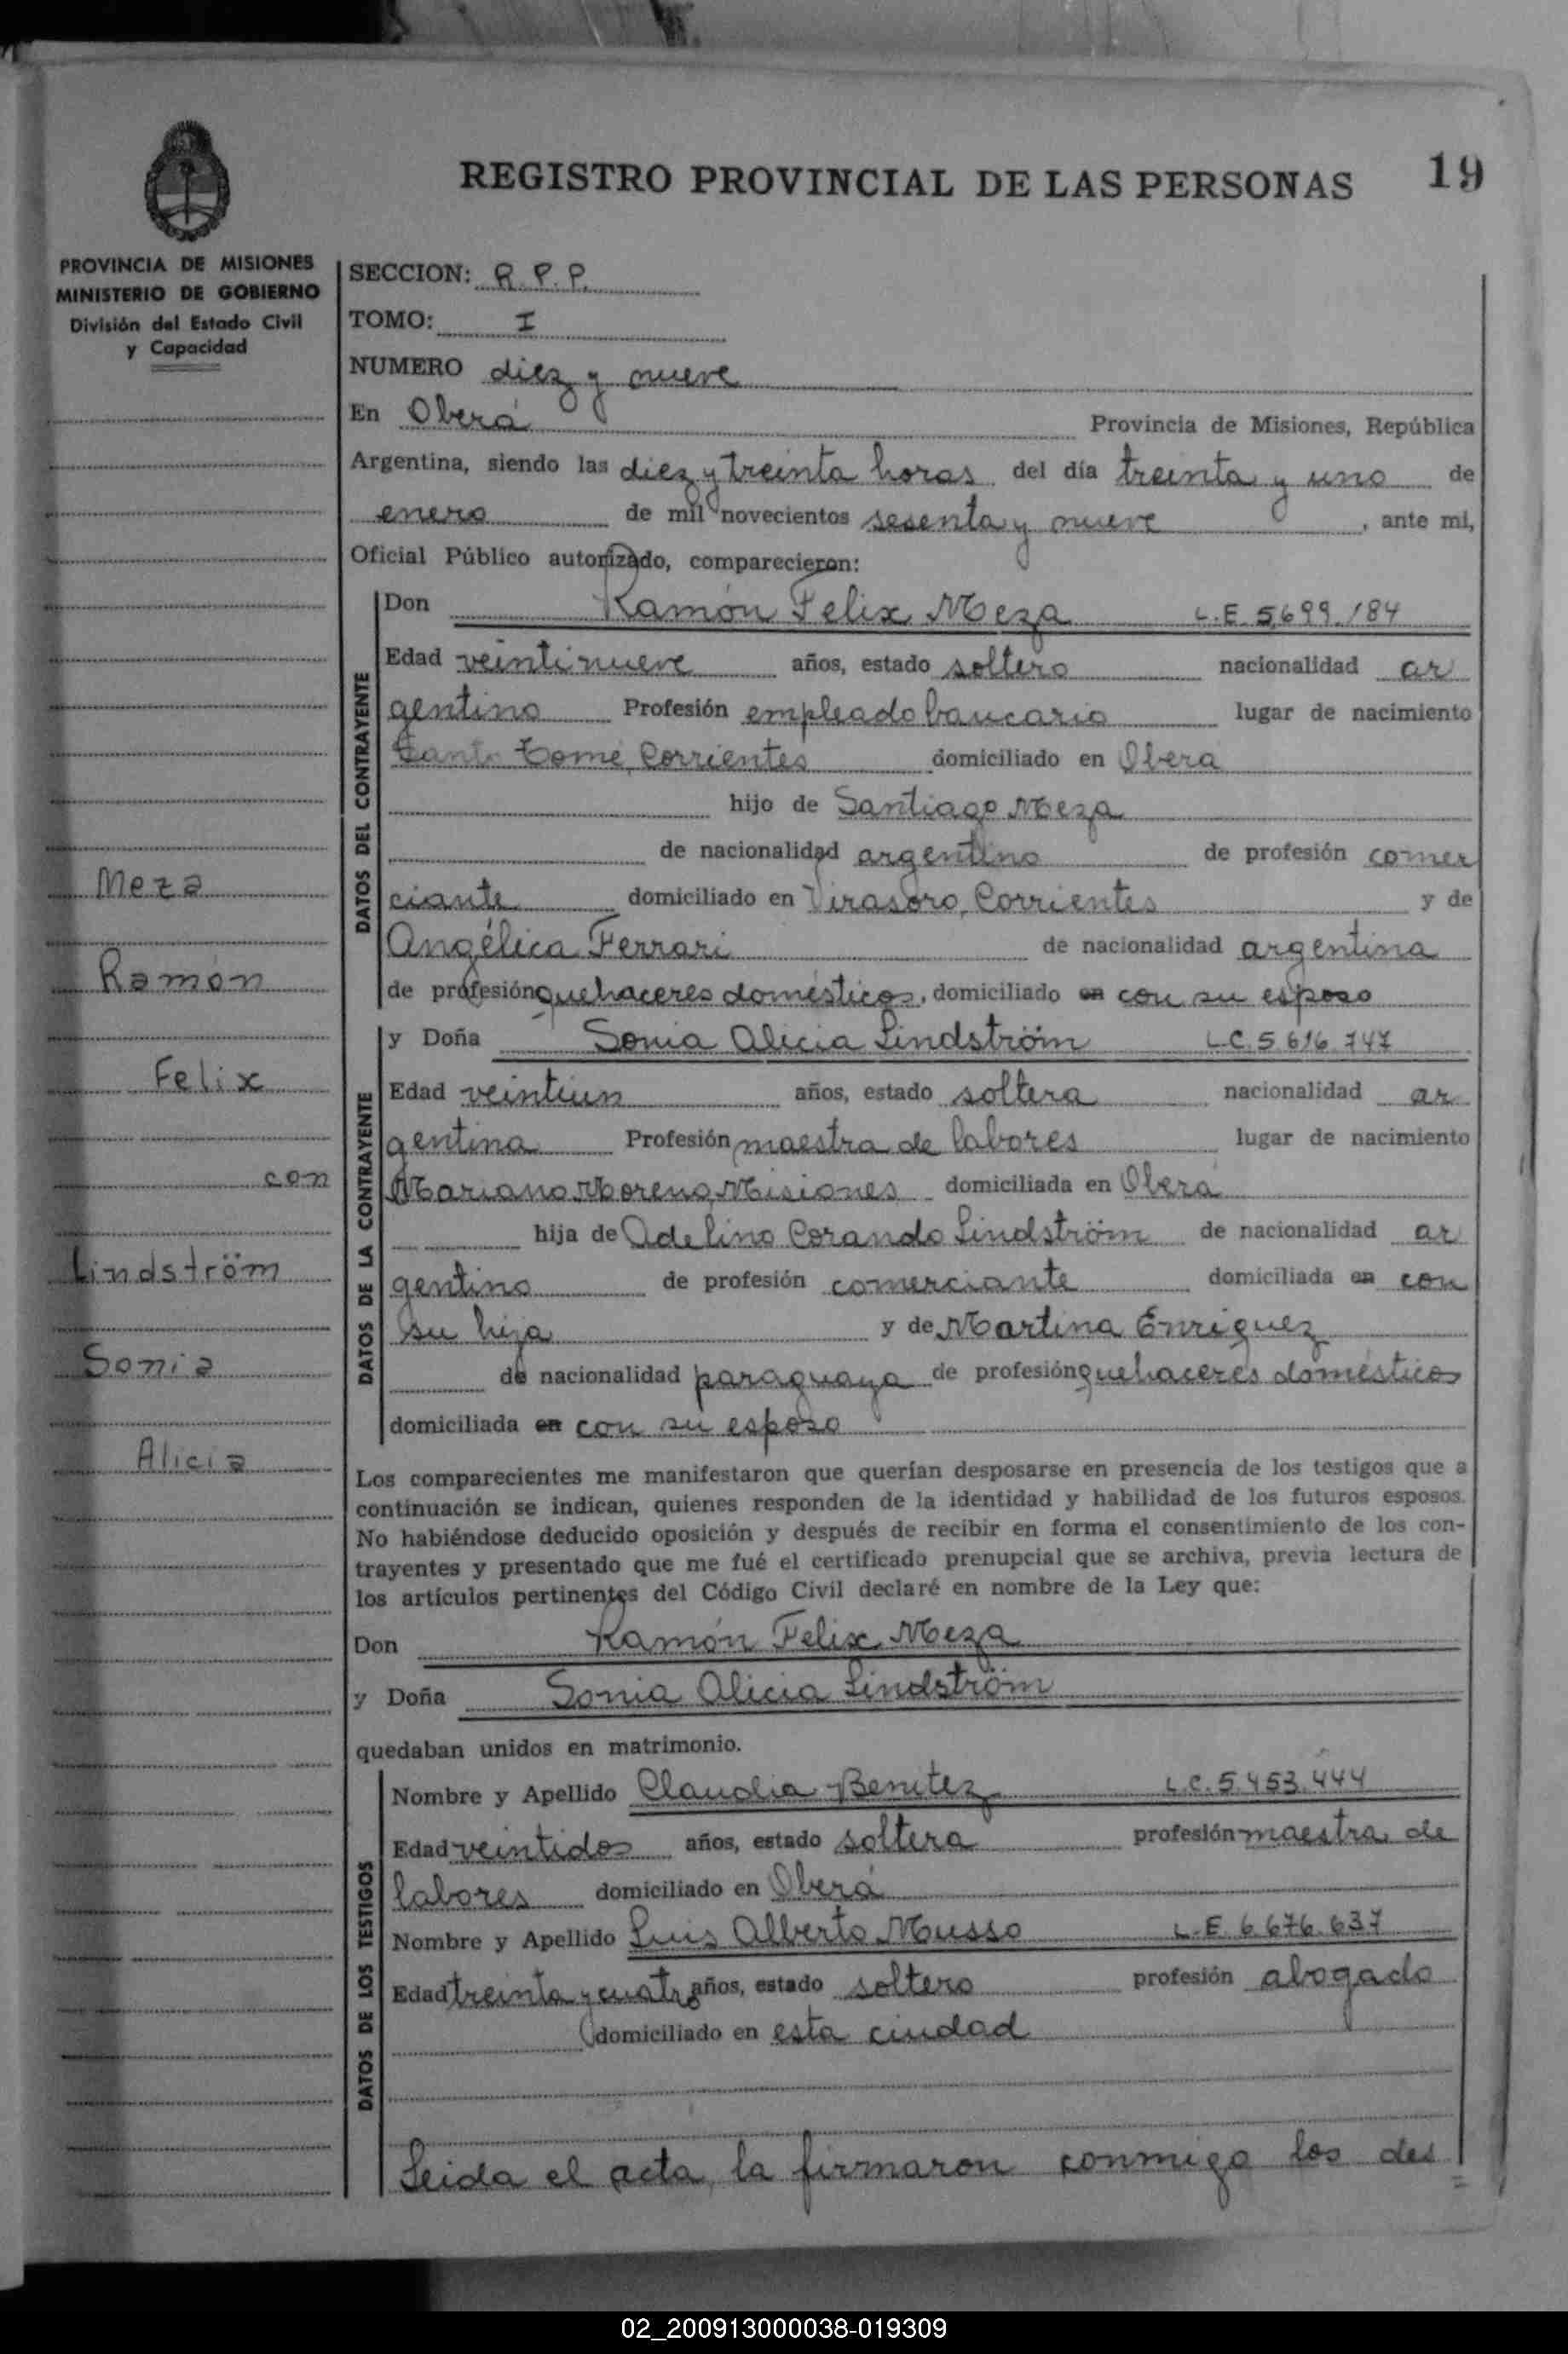 REGISTRO PROVINCIAL DE LAS PERSONAS 19
PROVINCIA DE MISIONES
MINISTERIO DE GOBIERNO
División del Estado Civil
y Capacidad
Meza
Ramón
Felix
con
Lindström
Sonia
Alicia
SECCION: R.P.P.
TOMO: I
NUMERO diez y nueve
En Oberá Provincia de Misiones, República
Argentina, siendo las diez y treinta horas del día treinta y uno de
enero de mil novecientos sesenta y nueve, ante mi,
Oficial Público autorizado, comparecieron:
DATOS DEL CONTRAYENTE
Don Ramón Felix Meza L.E. 5.699.184
Edad veintinueve años, estado soltero nacionalidad ar
gentino Profesión empleado bancario lugar de nacimiento
Santo Tomé, Corrientes domiciliado en Oberá
hijo de Santiago Meza
de nacionalidad argentino de profesión comer
ciante domiciliado en Virasoro, Corrientes y de
Angélica Ferrari de nacionalidad argentina
de profesión quehaceres domésticos, domiciliado en con su esposo
DATOS DE LA CONTRAYENTE
y Doña Sonia Alicia Lindström L.C. 5.616.747
Edad veintiun años, estado soltera nacionalidad ar
gentina Profesión maestra de labores lugar de nacimiento
Mariano Moreno, Misiones domiciliada en Oberá
hija de Adelino Corando Lindström de nacionalidad ar
gentino de profesión comerciante domiciliada en con
su hija y de Martina Enriquez
de nacionalidad paraguaya de profesión quehaceres domésticos
domiciliada en con su esposo
Los comparecientes me manifestaron que querían desposarse en presencia de los testigos que a
continuación se indican, quienes responden de la identidad y habilidad de los futuros esposos.
No habiéndose deducido oposición y después de recibir en forma el consentimiento de los con-
trayentes y presentado que me fué el certificado prenupcial que se archiva, previa lectura de
los artículos pertinentes del Código Civil declaré en nombre de la Ley que:
Don Ramón Felix Meza
y Doña Sonia Alicia Lindström
quedaban unidos en matrimonio.
DATOS DE LOS TESTIGOS
Nombre y Apellido Claudia Benitez L.C. 5.453.444
Edad veintidos años, estado soltera profesión maestra de
labores domiciliado en Oberá
Nombre y Apellido Luis Alberto Musso L.E. 6.676.637
Edad treinta y cuatro años, estado soltero profesión abogado
domiciliado en esta ciudad
Leida el acta, la firmaron conmigo los des
02_200913000038-019309